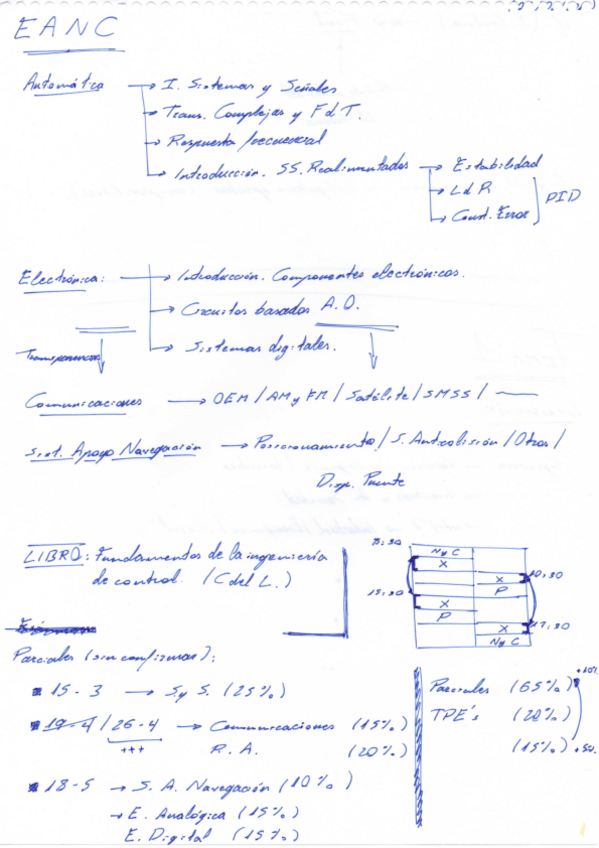 EANC
Automática → I. Sistemas y Señales
→ Trans. Complejas y F d T.
→ Respuesta frecuencial
→ Introducción. SS. Realimentados → Estabilidad
→ L d R
→ Const. Error
PID
Electrónica: → Introducción. Componentes electrónicos.
→ Circuitos basados A.O.
→ Sistemas digitales.
Transparencias
Comunicaciones → OEM / AM y FM / Satélite / SMSS /
Sist. Apoyo Navegación → Posicionamiento / S. Anticolisión / Otros /
Disp. Puente
LIBRO: Fundamentos de la ingeniería
de control. (C del L.)
8:30
N y C
X
X
10:30
P
15:30
X
P
X
17:30
N y C
Parciales (sin confirmar):
15-3 → S y S. (25%)
19-4 / 26-4 → Comunicaciones (15%)
+++ R.A. (20%)
18-5 → S. A. Navegación (10%)
→ E. Analógica (15%)
E. Digital (15%)
Parciales (65%)
+10%
TPE's (20%)
(15%)